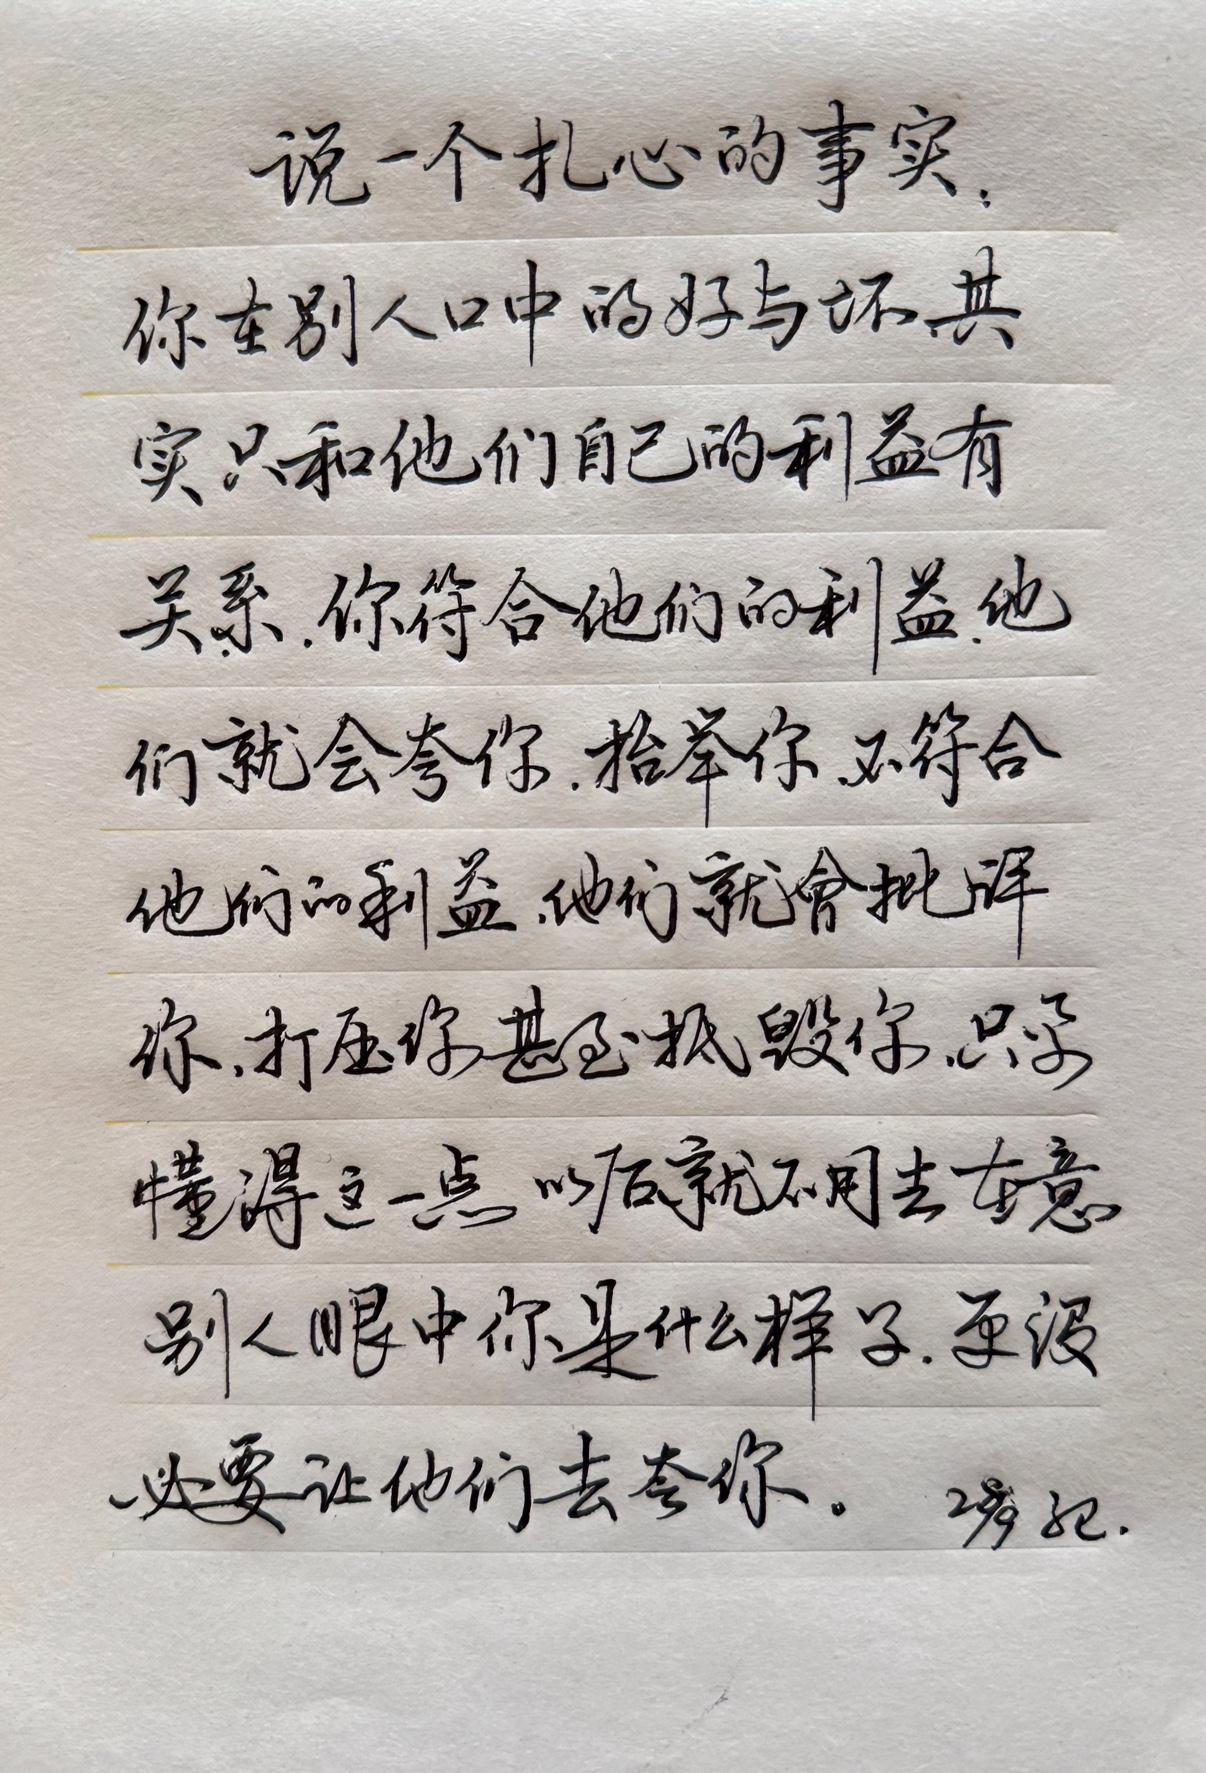 说一个扎心的事实：
你在别人口中的好与坏，其
实只和他们自己的利益有
关系，你符合他们的利益，他
们就会夸你，抬举你，不符合
他们的利益，他们就會批评
你，打压你甚至抵毁你，只要
懂得这一点 以后就不用去在意
别人眼中你是什么样子，更没
必要让他们去夸你。